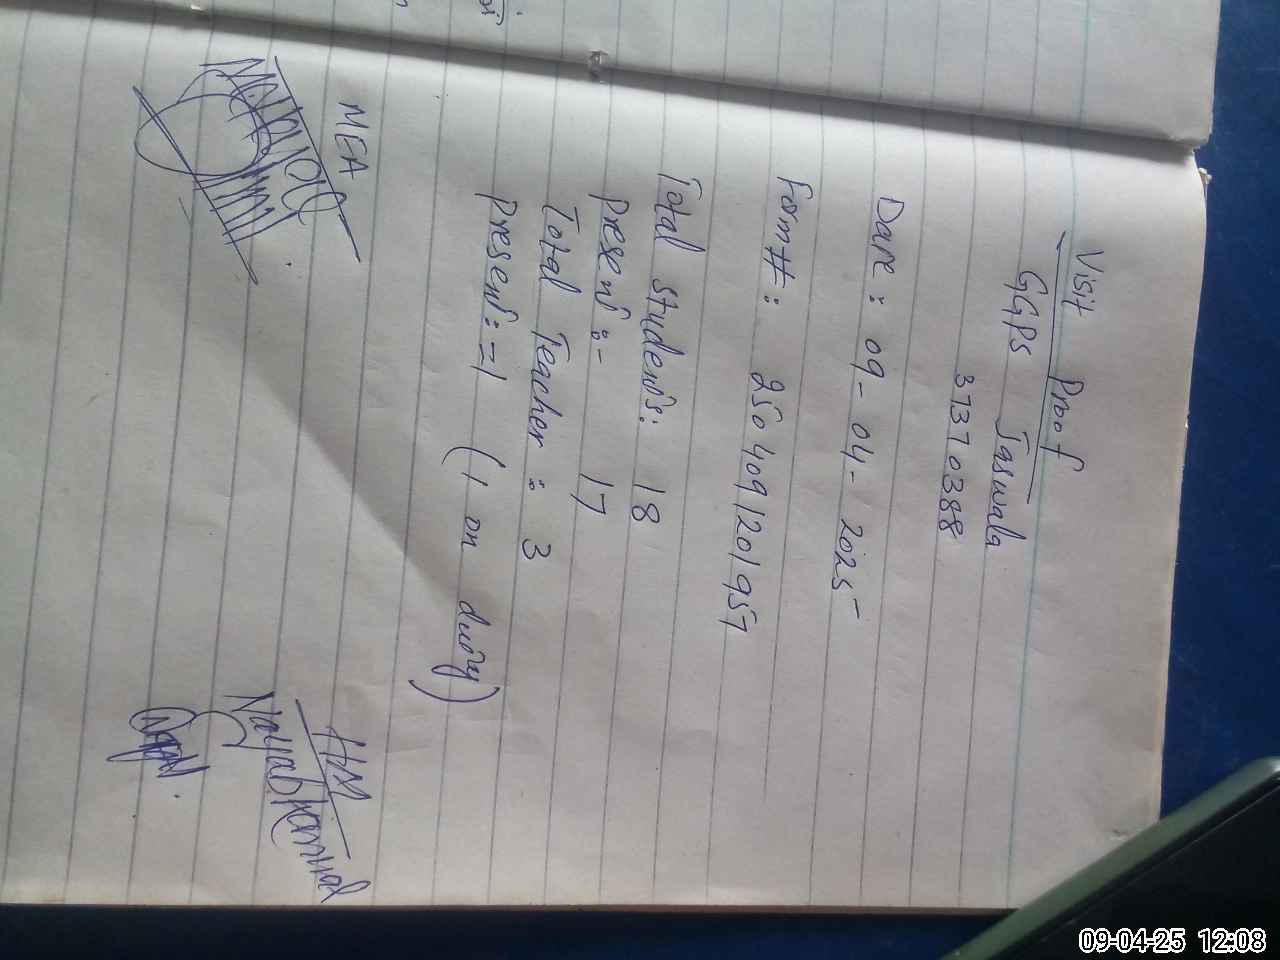 Visit Proof
GGPS Jaswala
37370388
Date: 09-04-2025
Form#: 2504091201957
Total students: 18
present:- 17
Total Teacher: 3
present:=1 (1 on duty)
MEA
HM
Nayab
09-04-25 12:08